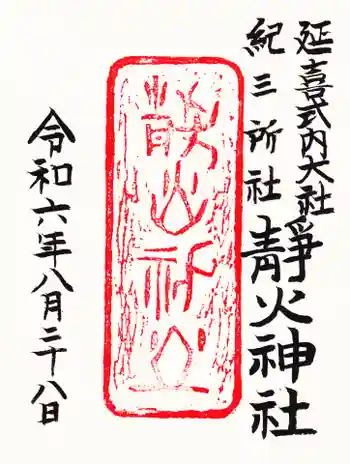 延喜式内大社
紀三所社
静火神社
令和六年八月二十八日